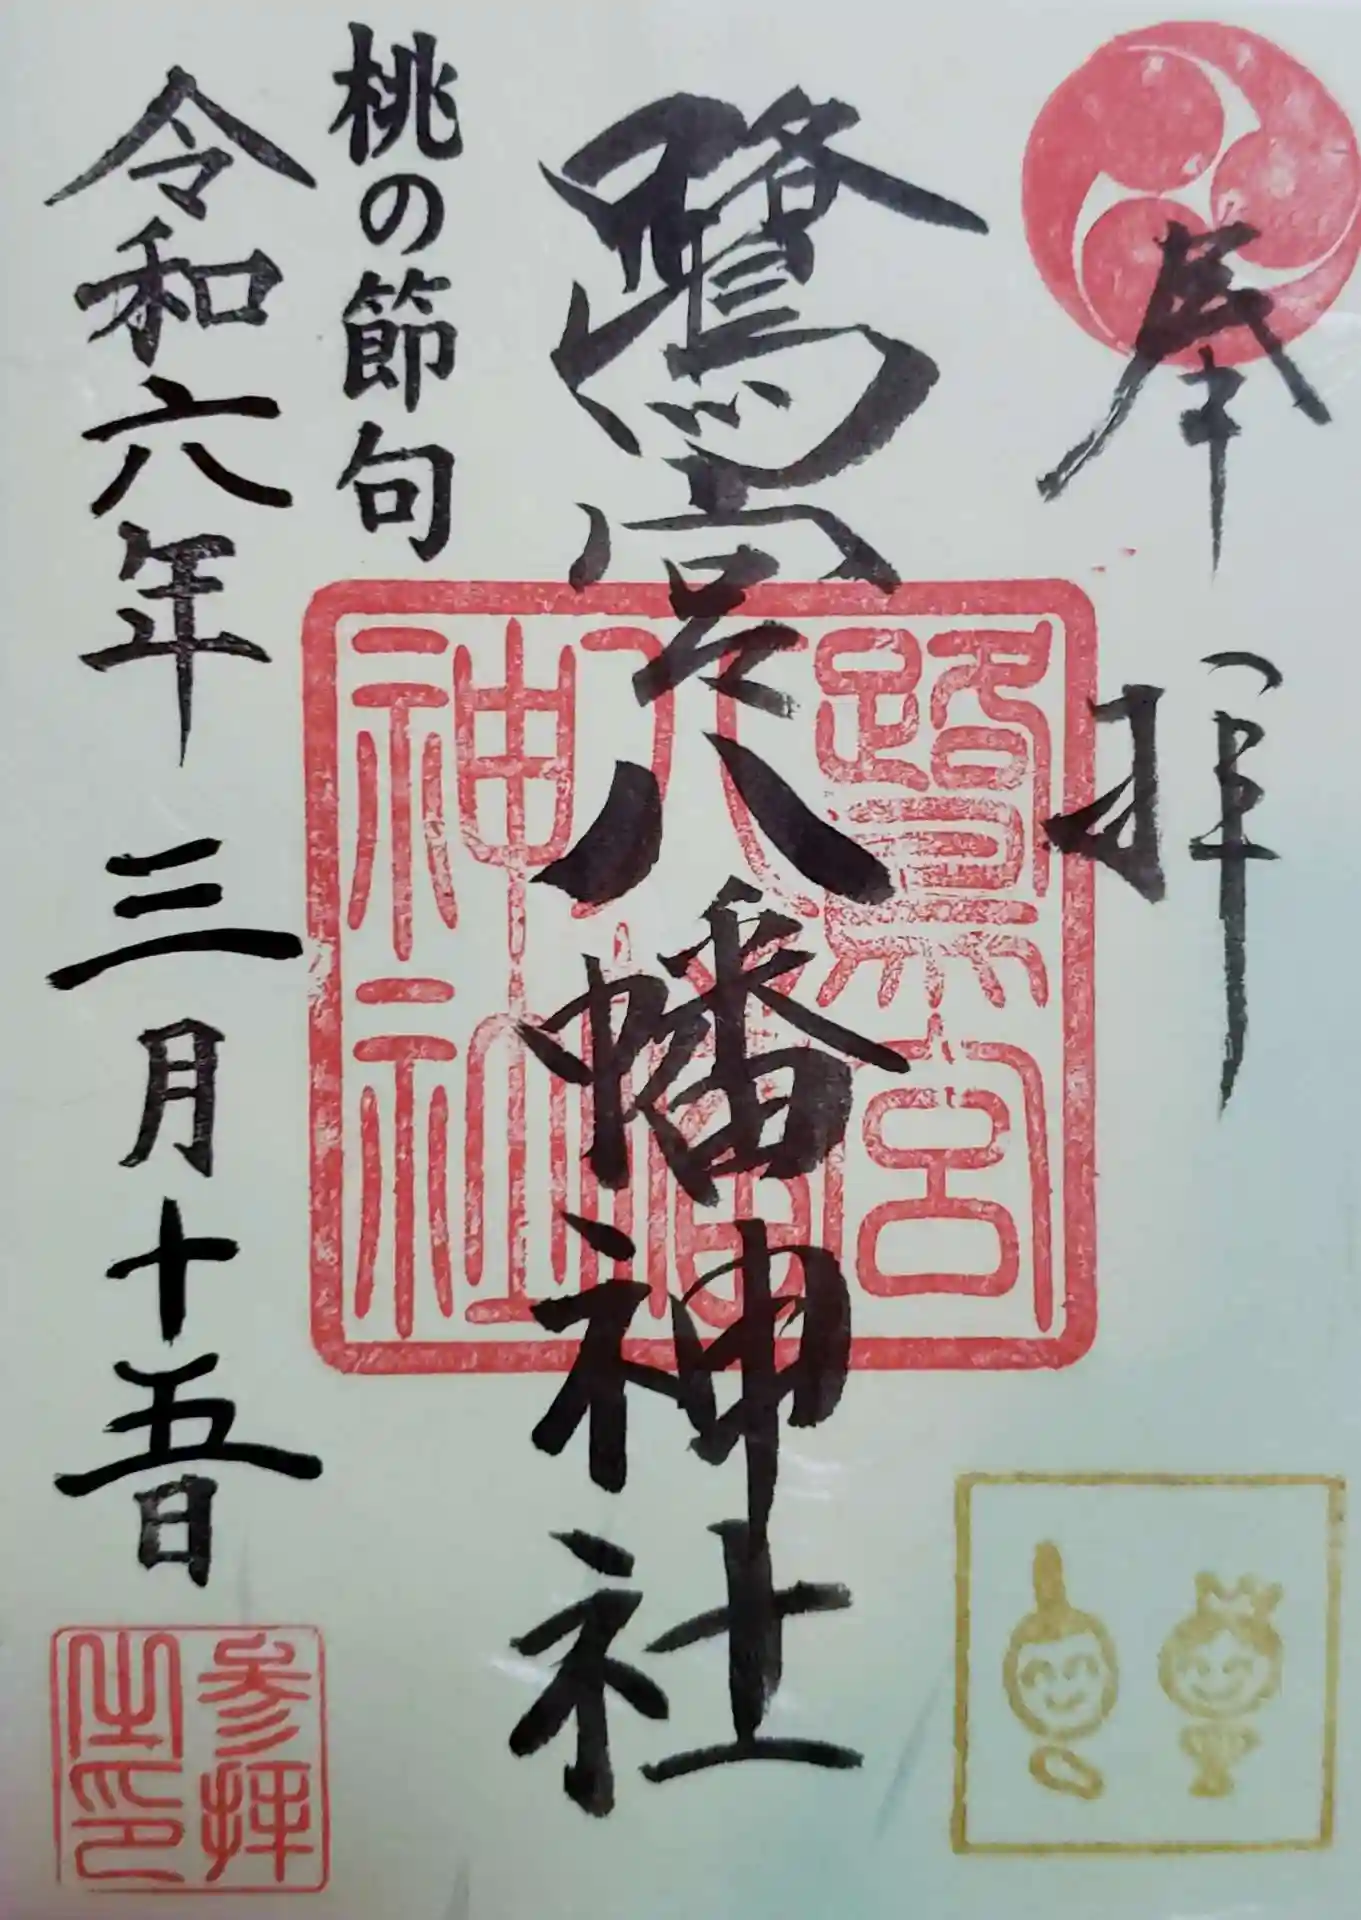 奉拝
鷺宮八幡神社
桃の節句
令和六年三月十五日
鷺宮
八幡
神社
参拝
之印